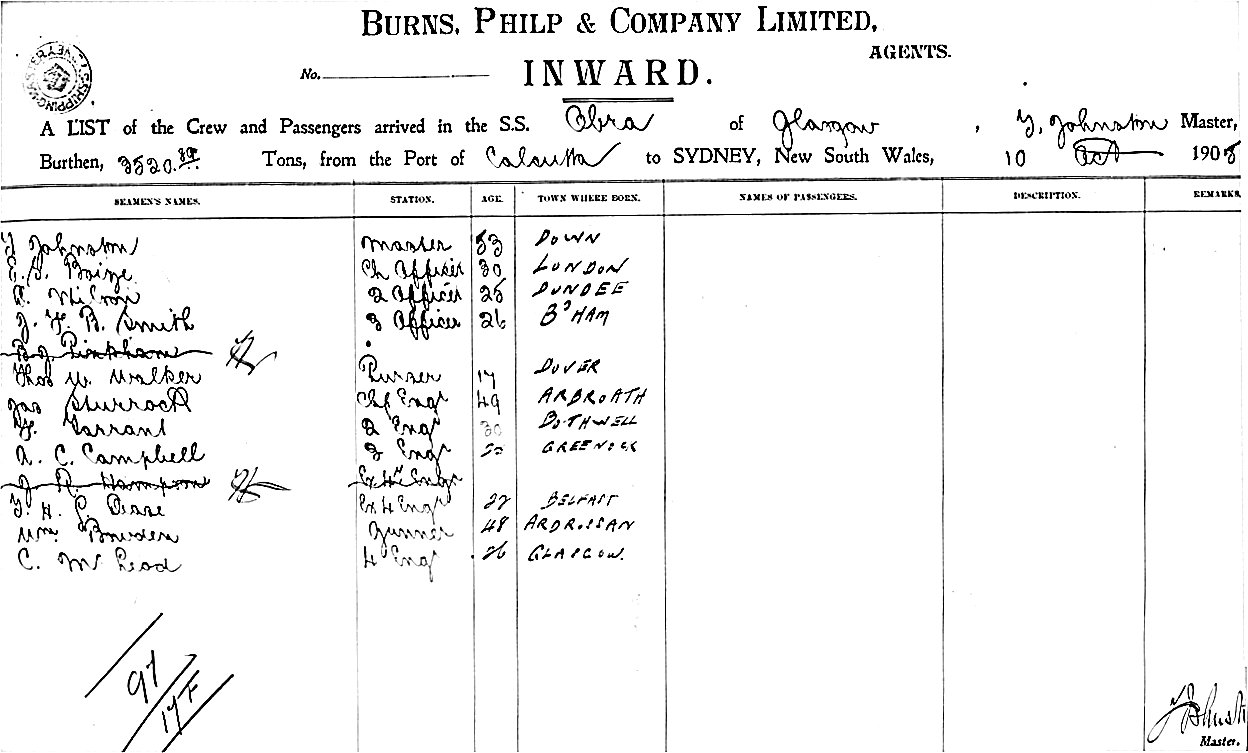 BURNS, PHILP & COMPANY LIMITED,
AGENTS.
No. INWARD.
A LIST of the Crew and Passengers arrived in the S.S. Obra of Glasgow, Y, Johnston Master,
Burthen, 3520.89 Tons, from the Port of Calcutta to SYDNEY, New South Wales, 10 Oct 1905
SEAMEN'S NAMES. STATION. AGE. TOWN WHERE BORN. NAMES OF PASSENGERS. DESCRIPTION. REMARKS
Y Johnston Master 53 DOWN
E. S. Boize Ch Officer 30 LONDON
Wilson 2 Officer 25 DUNDEE
J. Y. B. Smith 3 Officer 26 B'HAM
B J. Pinkham
Thos W. Walker Purser 17 DOVER
Jas Sturrock Chf Engr 49 ARBROATH
Y. Tarrant 2 Engr 30 BOTHWELL
A. C. Campbell 3 Engr GREENOCK
J. R. Hampson Ex 4th Engr
Y. H. G. Dease Ex 4 Engr 22 BELFAST
Wm Bowden Gunner 48 ARDROSSAN
C. McLeod 4 Engr 26 GLASGOW.
97
17F
Y Johnst
Master.